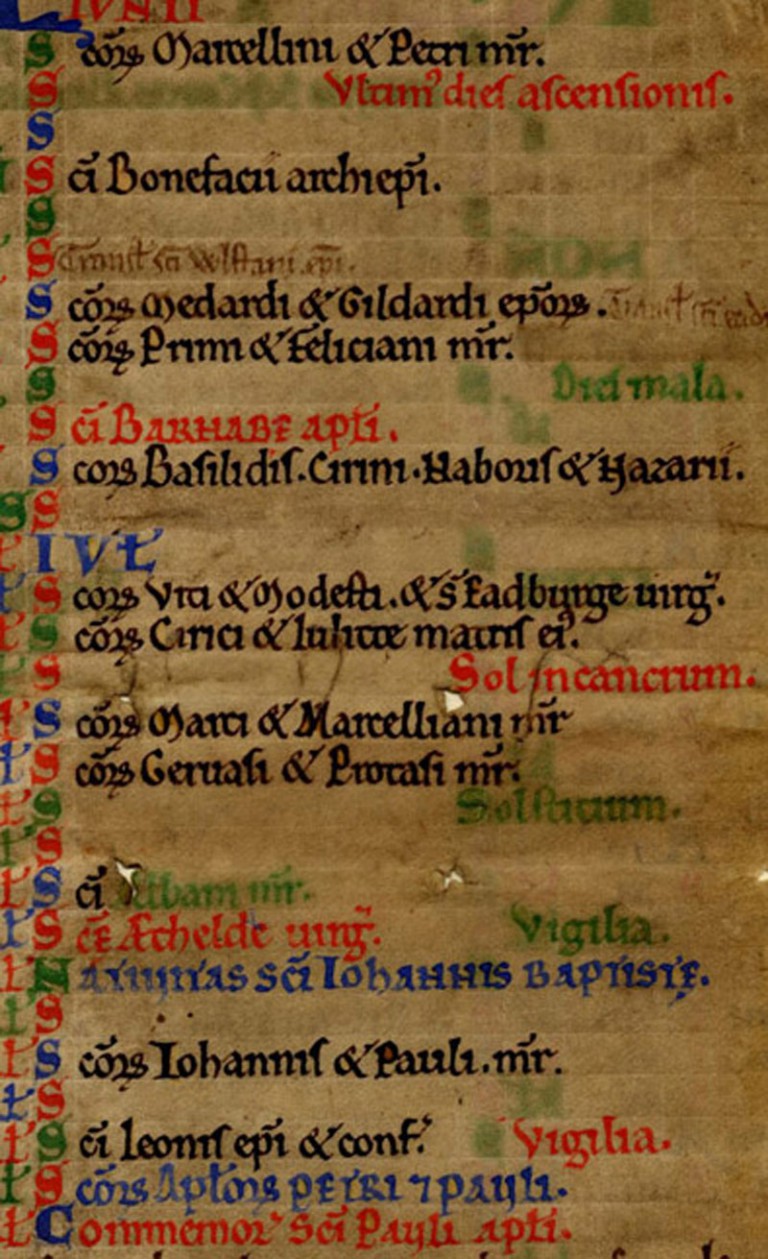 IVNII
S cōꝝ Marcellini & Petri mr̄.
S Vltim⁹ dies ascensionis.
S
S cī Bonefacii archiep̄i.
S
S Transl̄ sc̄i Wlstani ep̄i.
S cōꝝ Medardi & Gildardi ep̄oꝝ. Transl̄ sc̄i
S cōꝝ Primi & Feliciani mr̄.
S Dies mala.
S cī BARNABE apl̄i.
S coꝝ Basilidis. Cirini. Naboris & Nazarii.
S
IVL̄
S coꝝ Viti & Modesti. & S̄ Eadburge uirḡ.
S cōꝝ Cirici & Iulitte matris ei⁹.
S Sol in cancrum.
S cōꝝ Marci & Marcelliani mr̄
S cōꝝ Geruasi & Protasi mr̄.
S Solsticium.
S
S cī Albani mr̄.
S cē̄ Æthelde uirḡ. Vigilia.
NATIUITAS SC̄I IOHANNIS BAPTISTĘ.
S
S cōꝝ Iohannis & Pauli. mr̄.
S
S cī leonis ep̄i & conf̄. Vigilia.
S cōꝝ Apl̄oꝝ PETRI ⁊ PAULI.
Commemor̄ Sc̄i Pauli apl̄i.